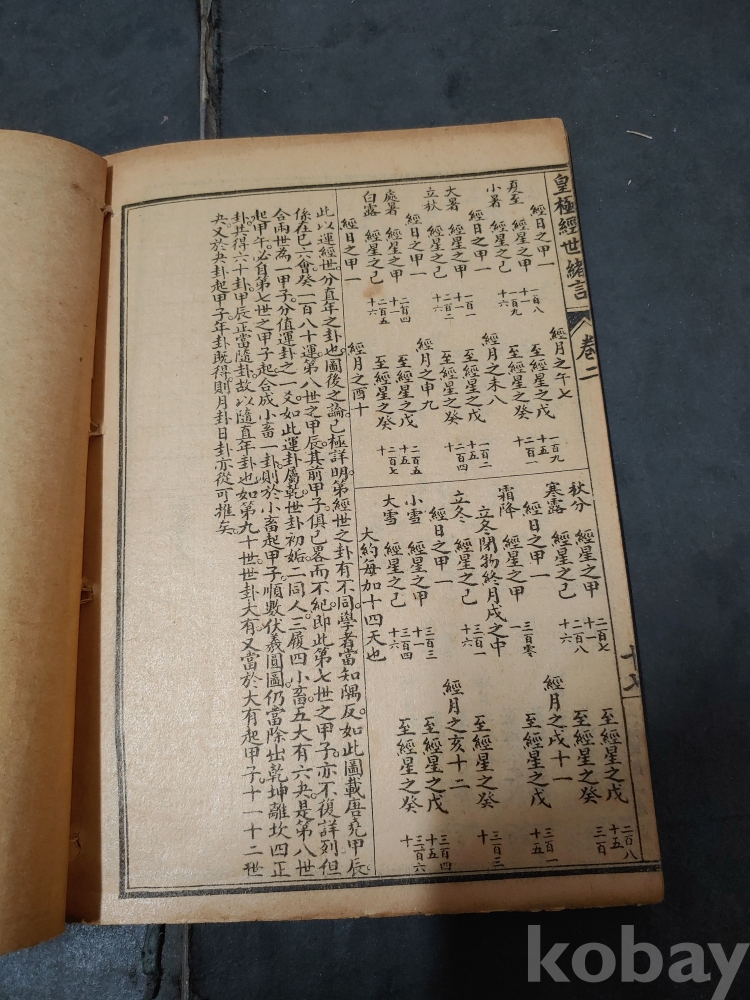 皇極經世緒言
卷二
十七
夏至 經日之甲一
經星之甲十一 一百八
小暑 經星之己十六 一百九
經月之午七
至經星之戊十五 一百九
至經星之癸二十 二百一
大暑 經日之甲一
經星之甲十一 一百一
立秋 經星之己十六 二百二
經月之未八
至經星之戊十五 一百二
至經星之癸二十 二百四
處暑 經日之甲一
經星之甲十一 二百四
白露 經星之己十六 二百五
經月之申九
至經星之戊十五 二百五
至經星之癸二十 二百七
經日之甲一
經月之酉十
秋分 經星之甲十一 二百七
寒露 經星之己十六 二百八
至經星之戊十五 二百八
至經星之癸 三百
經日之甲一
經月之戌十一
霜降 經星之甲一 三百零
至經星之戊十五 三百一
立冬閉物終月戌之中
立冬 經星之己十六 三百一
至經星之癸十 三百三
經日之甲一
經月之亥十二
小雪 經星之甲十一 三百三
至經星之戊十五 三百四
大雪 經星之己十六 三百四
至經星之癸十 三百六
大約每加十四天也
此以運經世分直年之卦也。圖後之論已極詳明。第經世之卦有不同。學者當知隅反。如此圖載唐堯甲辰。
係在巳六會癸一百八十運。第八世之甲辰。其前甲子俱已畧而不紀。即此第七世之甲子。亦不復詳列。但
合兩世為一甲子。分值運卦之一爻。如此運卦屬乾。世卦初姤二同人三履四小畜五大有六夬。是第八世
起甲午。必自第七世之甲子起。合成小畜一卦。則於小畜起甲子。順數伏羲圓圖。仍當除出乾坤離坎四正
卦。共得六十卦。甲辰正當隨卦。故以隨直年卦也。如第九十世世卦大有。又當於大有起甲子。十一十二世
夬。又於夬卦起甲子。年卦既得。則月卦日卦亦從可推矣。
kobay